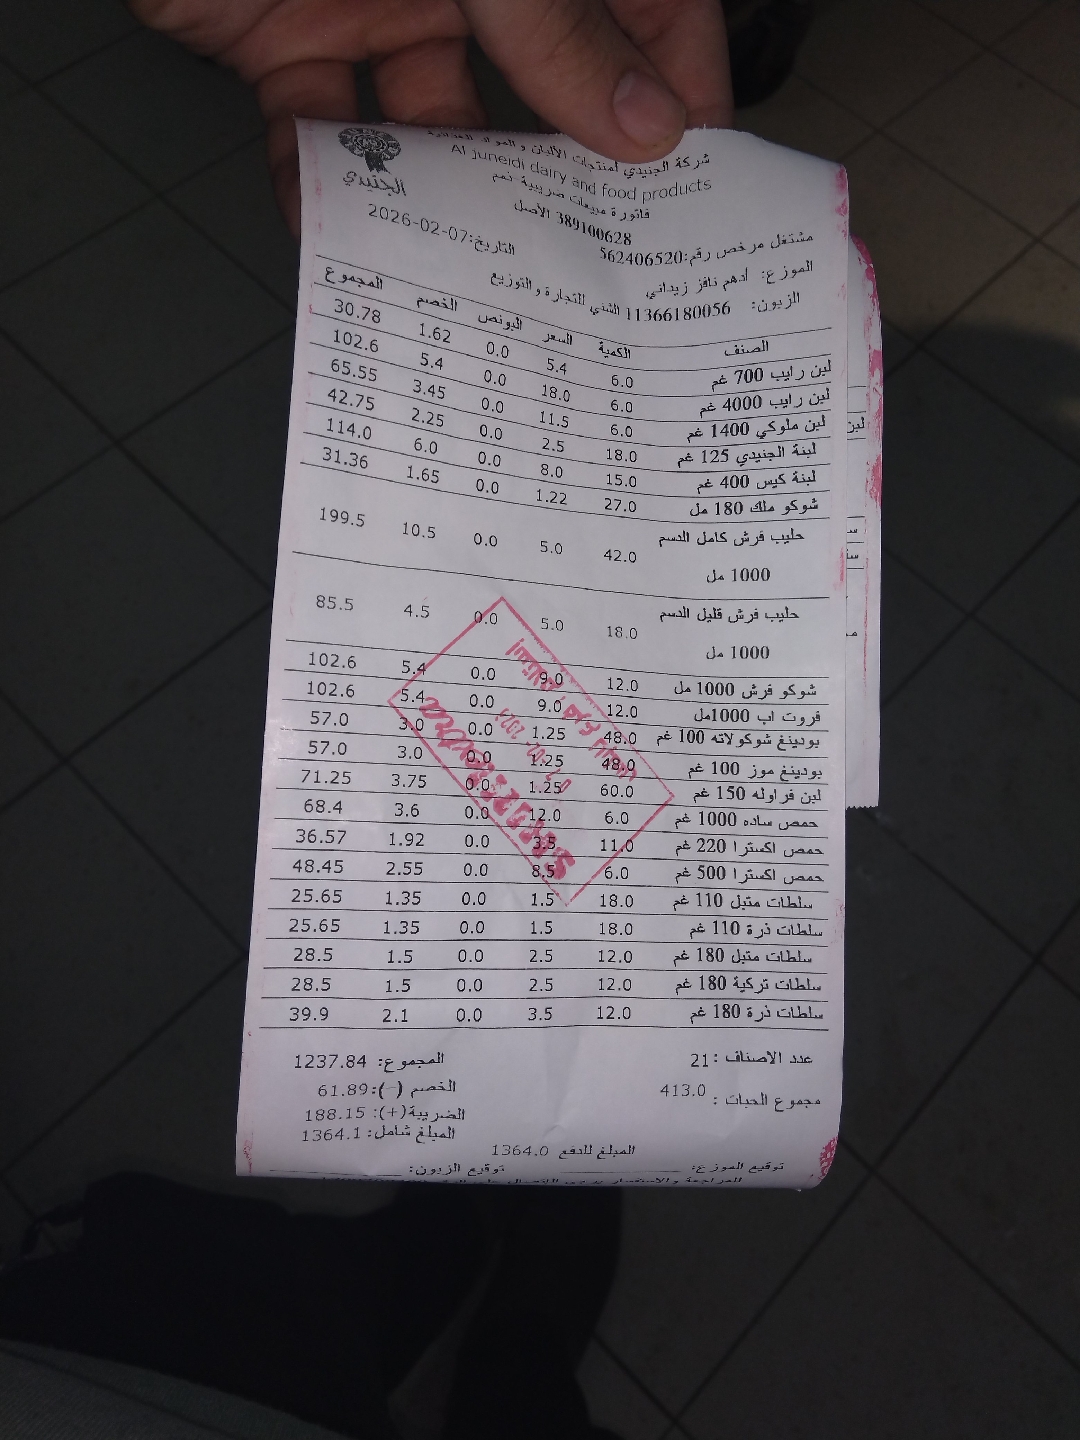 شركة الجنيدي لمنتجات الألبان و المواد الغذائية
Al juneidi dairy and food products
الجنيدي
فاتورة مبيعات ضريبية-ذمم
389100628 الأصل
مشتغل مرخص رقم:562406520
التاريخ:2026-02-07
الموزع: أدهم نافز زيداني
الزبون: 11366180056 الشني للتجارة و التوزيع
الصنف الكمية السعر البونص الخصم المجموع
لبن رايب 700 غم 6.0 5.4 0.0 1.62 30.78
لبن رايب 4000 غم 6.0 18.0 0.0 5.4 102.6
لبن ملوكي 1400 غم 6.0 11.5 0.0 3.45 65.55
لبنة الجنيدي 125 غم 18.0 2.5 0.0 2.25 42.75
لبنة كيس 400 غم 15.0 8.0 0.0 6.0 114.0
شوكو ملك 180 مل 27.0 1.22 0.0 1.65 31.36
حليب فرش كامل الدسم 42.0 5.0 0.0 10.5 199.5
1000 مل
حليب فرش قليل الدسم 18.0 5.0 0.0 4.5 85.5
1000 مل
شوكو فرش 1000 مل 12.0 9.0 0.0 5.4 102.6
فروت اب 1000مل 12.0 9.0 0.0 5.4 102.6
بودينغ شوكولاته 100 غم 48.0 1.25 0.0 3.0 57.0
بودينغ موز 100 غم 48.0 1.25 0.0 3.0 57.0
لبن فراوله 150 غم 60.0 1.25 0.0 3.75 71.25
حمص ساده 1000 غم 6.0 12.0 0.0 3.6 68.4
حمص اكسترا 220 غم 11.0 3.5 0.0 1.92 36.57
حمص اكسترا 500 غم 6.0 8.5 0.0 2.55 48.45
سلطات متبل 110 غم 18.0 1.5 0.0 1.35 25.65
سلطات ذرة 110 غم 18.0 1.5 0.0 1.35 25.65
سلطات متبل 180 غم 12.0 2.5 0.0 1.5 28.5
سلطات تركية 180 غم 12.0 2.5 0.0 1.5 28.5
سلطات ذرة 180 غم 12.0 3.5 0.0 2.1 39.9
عدد الاصناف :21
المجموع: 1237.84
الخصم (-):61.89
مجموع الحبات : 413.0
الضريبة(+): 188.15
المبلغ شامل: 1364.1
المبلغ للدفع 1364.0
توقيع الموزع: توقيع الزبون: